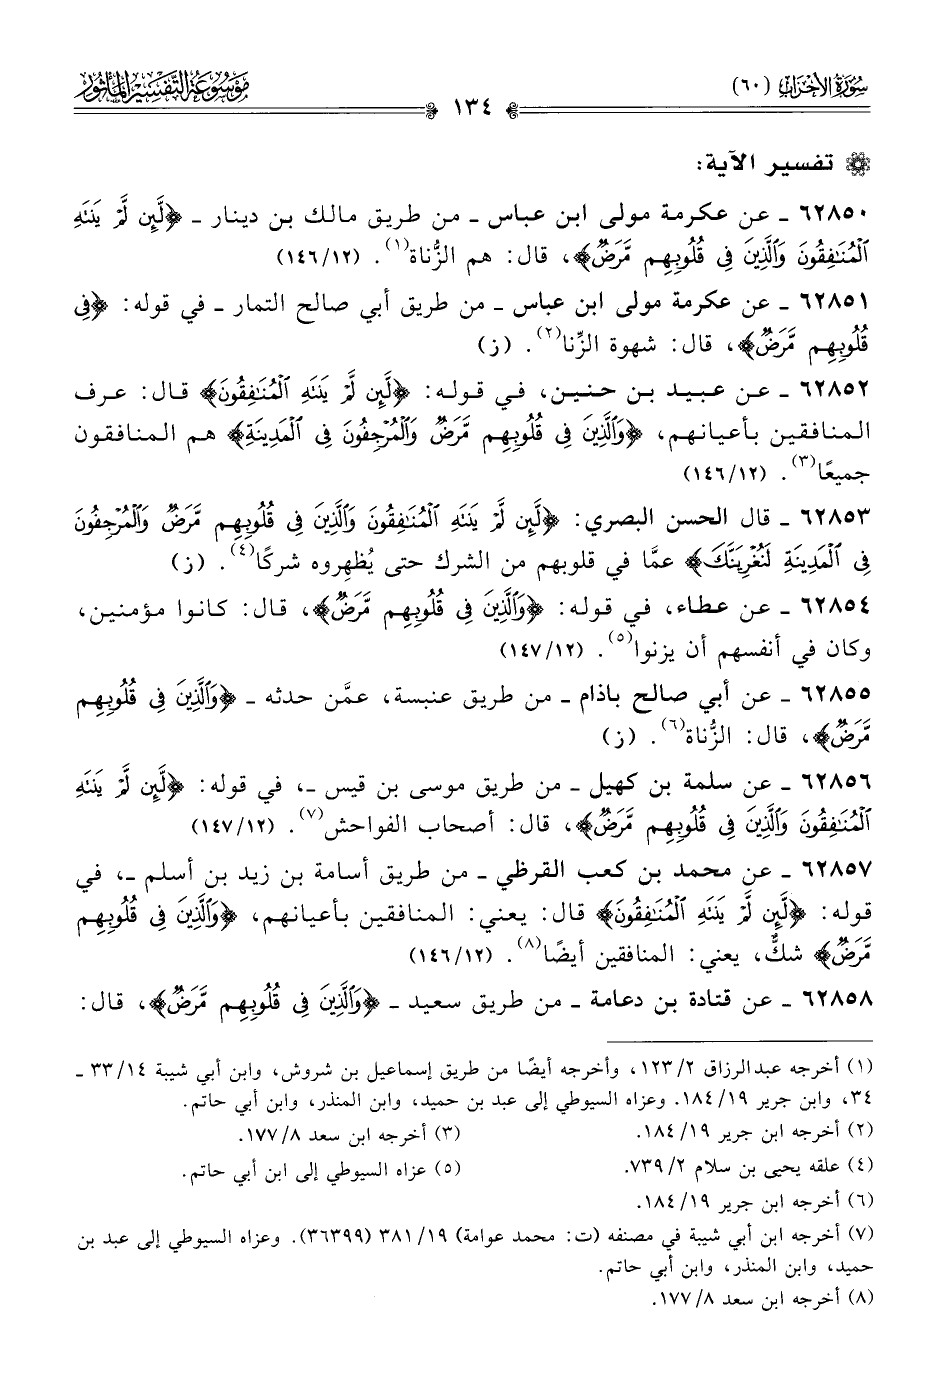 سُورَةُ الأَحْزَابِ (٦٠)
١٣٤
مَوْسُوعَةُ التَّفْسِيرِ المَأْثُور
تفسير الآية:
٦٢٨٥٠ ـ عن عكرمة مولى ابن عباس ـ من طريق مالك بن دينار ـ ﴿لَّئِن لَّمْ يَنتَهِ
ٱلْمُنَٰفِقُونَ وَٱلَّذِينَ فِى قُلُوبِهِم مَّرَضٌ﴾، قال: هم الزُّناة(١). (١٤٦/١٢)
٦٢٨٥١ ـ عن عكرمة مولى ابن عباس ـ من طريق أبي صالح التمار ـ في قوله: ﴿فِى
قُلُوبِهِم مَّرَضٌ﴾، قال: شهوة الزِّنا(٢). (ز)
٦٢٨٥٢ ـ عن عبيد بن حنين، في قوله: ﴿لَّئِن لَّمْ يَنتَهِ ٱلْمُنَٰفِقُونَ﴾ قال: عرف
المنافقين بأعيانهم، ﴿وَٱلَّذِينَ فِى قُلُوبِهِم مَّرَضٌ وَٱلْمُرْجِفُونَ فِى ٱلْمَدِينَةِ﴾ هم المنافقون
جميعًا(٣). (١٤٦/١٢)
٦٢٨٥٣ ـ قال الحسن البصري: ﴿لَّئِن لَّمْ يَنتَهِ ٱلْمُنَٰفِقُونَ وَٱلَّذِينَ فِى قُلُوبِهِم مَّرَضٌ وَٱلْمُرْجِفُونَ
فِى ٱلْمَدِينَةِ لَنُغْرِيَنَّكَ﴾ عمَّا في قلوبهم من الشرك حتى يُظهِروه شركًا(٤). (ز)
٦٢٨٥٤ ـ عن عطاء، في قوله: ﴿وَٱلَّذِينَ فِى قُلُوبِهِم مَّرَضٌ﴾، قال: كانوا مؤمنين،
وكان في أنفسهم أن يزنوا(٥). (١٤٧/١٢)
٦٢٨٥٥ ـ عن أبي صالح باذام ـ من طريق عنبسة، عمَّن حدثه ـ ﴿وَٱلَّذِينَ فِى قُلُوبِهِم
مَّرَضٌ﴾، قال: الزُّناة(٦). (ز)
٦٢٨٥٦ ـ عن سلمة بن كهيل ـ من طريق موسى بن قيس ـ، في قوله: ﴿لَّئِن لَّمْ يَنتَهِ
ٱلْمُنَٰفِقُونَ وَٱلَّذِينَ فِى قُلُوبِهِم مَّرَضٌ﴾، قال: أصحاب الفواحش(٧). (١٤٧/١٢)
٦٢٨٥٧ ـ عن محمد بن كعب القرظي ـ من طريق أسامة بن زيد بن أسلم ـ، في
قوله: ﴿لَّئِن لَّمْ يَنتَهِ ٱلْمُنَٰفِقُونَ﴾ قال: يعني: المنافقين بأعيانهم، ﴿وَٱلَّذِينَ فِى قُلُوبِهِم
مَّرَضٌ﴾ شكٌّ، يعني: المنافقين أيضًا(٨). (١٤٦/١٢)
٦٢٨٥٨ ـ عن قتادة بن دعامة ـ من طريق سعيد ـ ﴿وَٱلَّذِينَ فِى قُلُوبِهِم مَّرَضٌ﴾، قال:
(١) أخرجه عبدالرزاق ١٢٣/٢، وأخرجه أيضًا من طريق إسماعيل بن شروش، وابن أبي شيبة ٣٣/١٤ ـ
٣٤، وابن جرير ١٨٤/١٩. وعزاه السيوطي إلى عبد بن حميد، وابن المنذر، وابن أبي حاتم.
(٢) أخرجه ابن جرير ١٨٤/١٩.
(٣) أخرجه ابن سعد ١٧٧/٨.
(٤) علقه يحيى بن سلام ٧٣٩/٢.
(٥) عزاه السيوطي إلى ابن أبي حاتم.
(٦) أخرجه ابن جرير ١٨٤/١٩.
(٧) أخرجه ابن أبي شيبة في مصنفه (ت: محمد عوامة) ٣٨١/١٩ (٣٦٣٩٩). وعزاه السيوطي إلى عبد بن
حميد، وابن المنذر، وابن أبي حاتم.
(٨) أخرجه ابن سعد ١٧٧/٨.